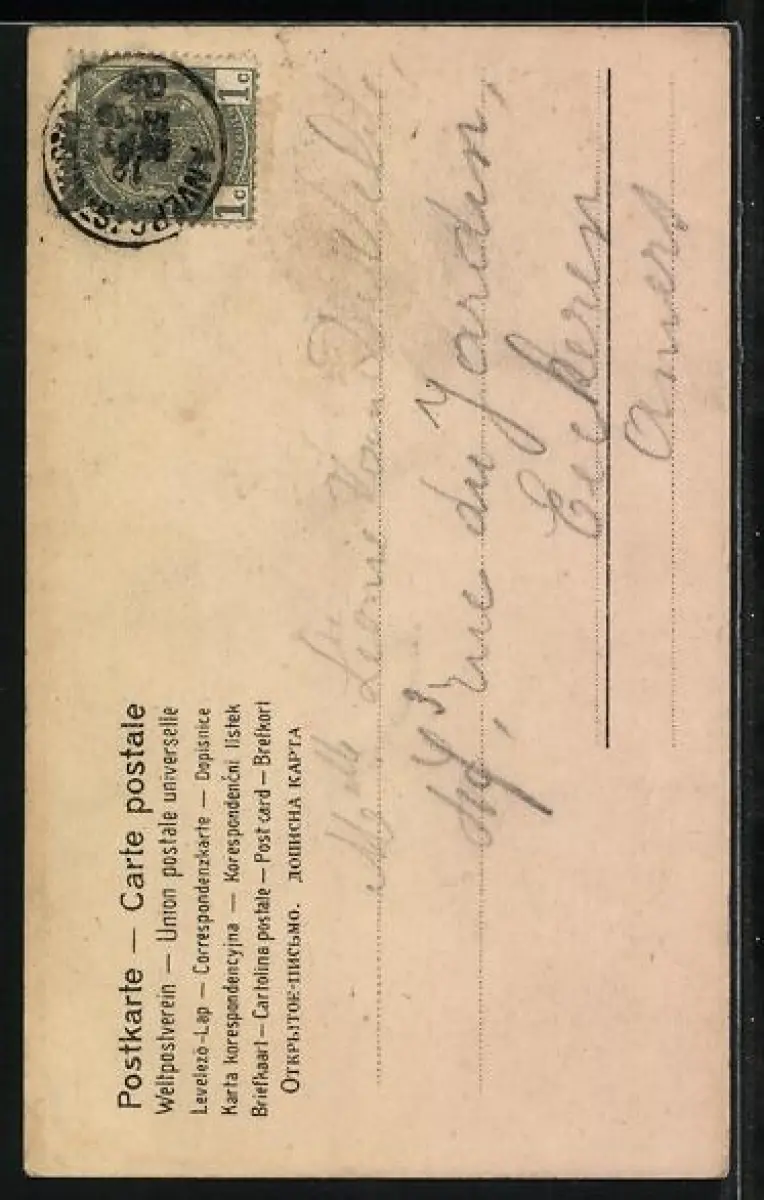 Postkarte — Carte postale
Weltpostverein — Union postale universelle
Levelezö-Lap — Correspondenzkarte — Dopisnice
Karta korespondencyjna — Korespondenční lístek
Briefkaart — Cartolina postale — Post card — Brefkort
ОТКРЫТОЕ-ПИСЬМО. ДОПИСНА КАРТА
1c 1c
ANVERS
Melle Léonie Van
rue du Jardin,
Eeckeren
Anvers